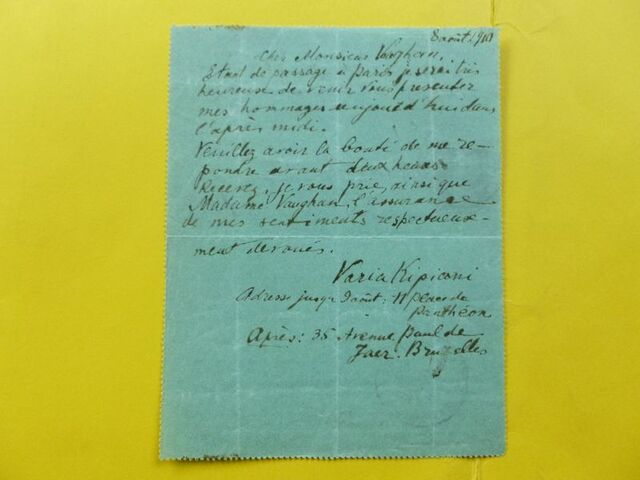 8 août 1901
Cher Monsieur Vaughan,
Etant de passage à Paris je serai très
heureuse de venir vous presenter
mes hommages aujourd'hui dans
l'après midi.
Veuillez avoir la bonté de me re-
pondre avant deux heures
Recevez, je vous prie, ainsi que
Madame Vaughan, l'assurance
de mes sentiments respectueux-
ment devoués.
Varia Kipiani
Adresse jusqu' 9 août: 11 place de
Panthéon
Après: 35 Avenue Paul de
Jaer. Bruxelles